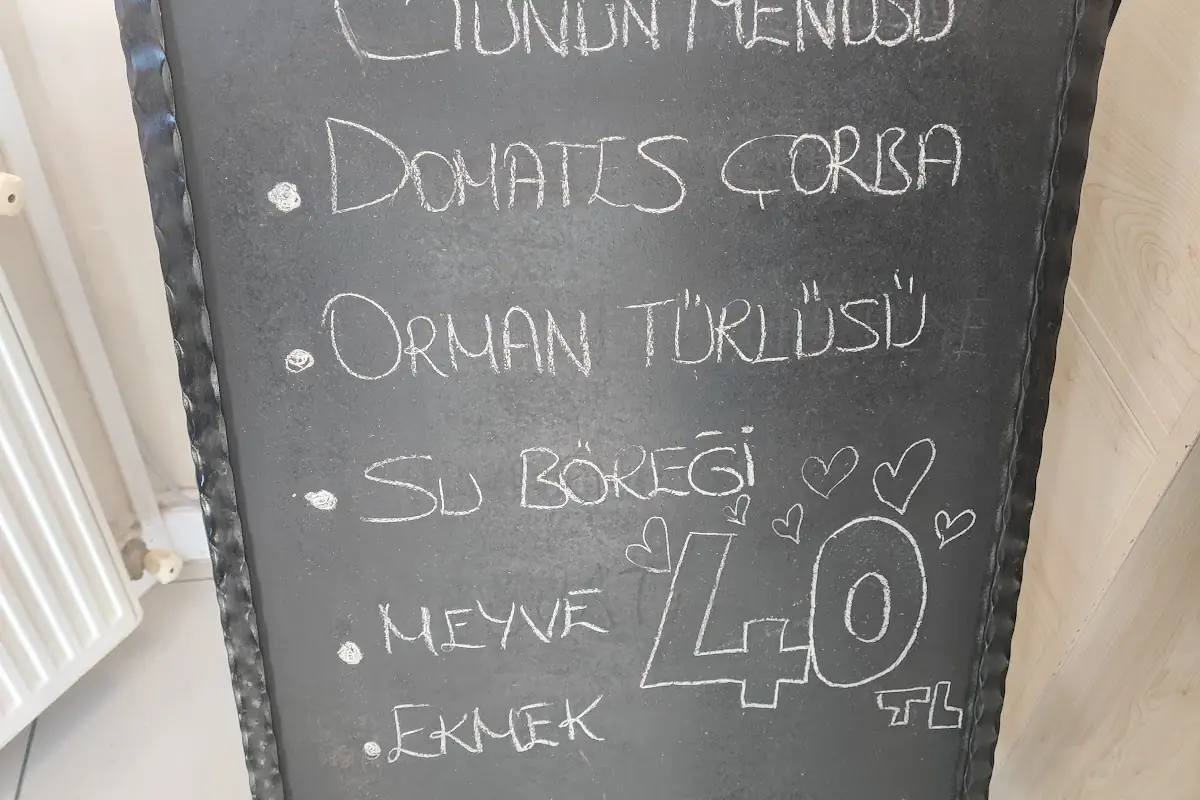 GÜNÜN MENÜSÜ
• DOMATES ÇORBA
• ORMAN TÜRLÜSÜ
• SU BÖREĞİ
• MEYVE
40 TL
• EKMEK